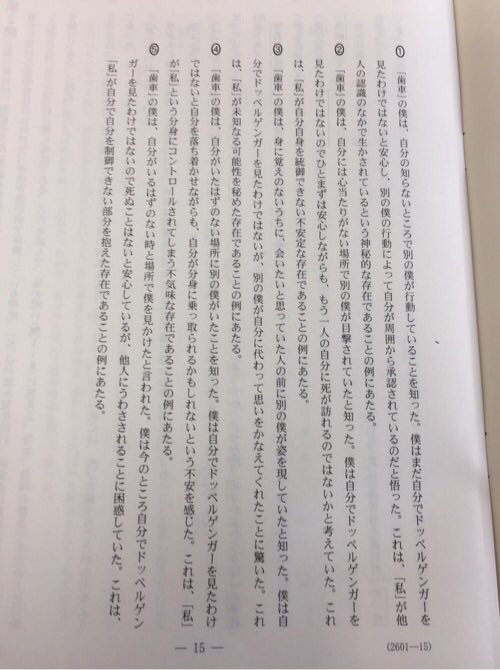 ① 「歯車」の僕は、自分の知らないところで別の僕が行動していることを知った。僕はまだ自分でドッペルゲンガーを
見たわけではないと安心し、別の僕の行動によって自分が周囲から承認されているのだと悟った。これは、「私」が他
人の認識のなかで生かされているという神秘的な存在であることの例にあたる。
② 「歯車」の僕は、自分には心当たりがない場所で別の僕が目撃されていたと知った。僕は自分でドッペルゲンガーを
見たわけではないのでひとまずは安心しながらも、もう一人の自分に死が訪れるのではないかと考えていた。これ
は、「私」が自分自身を統御できない不安定な存在であることの例にあたる。
③ 「歯車」の僕は、身に覚えのないうちに、会いたいと思っていた人の前に別の僕が姿を現していたと知った。僕は自
分でドッペルゲンガーを見たわけではないが、別の僕が自分に代わって思いをかなえてくれたことに驚いた。これ
は、「私」が未知なる可能性を秘めた存在であることの例にあたる。
④ 「歯車」の僕は、自分がいたはずのない場所に別の僕がいたことを知った。僕は自分でドッペルゲンガーを見たわけ
ではないと自分を落ち着かせながらも、自分が分身に乗っ取られるかもしれないという不安を感じた。これは、「私」
が「私」という分身にコントロールされてしまう不気味な存在であることの例にあたる。
⑤ 「歯車」の僕は、自分がいるはずのない時と場所で僕を見かけたと言われた。僕は今のところ自分でドッペルゲン
ガーを見たわけではないので死ぬことはないと安心しているが、他人にうわさされることに困惑していた。これは、
「私」が自分で自分を制御できない部分を抱えた存在であることの例にあたる。
— 15 —
(2601—15)